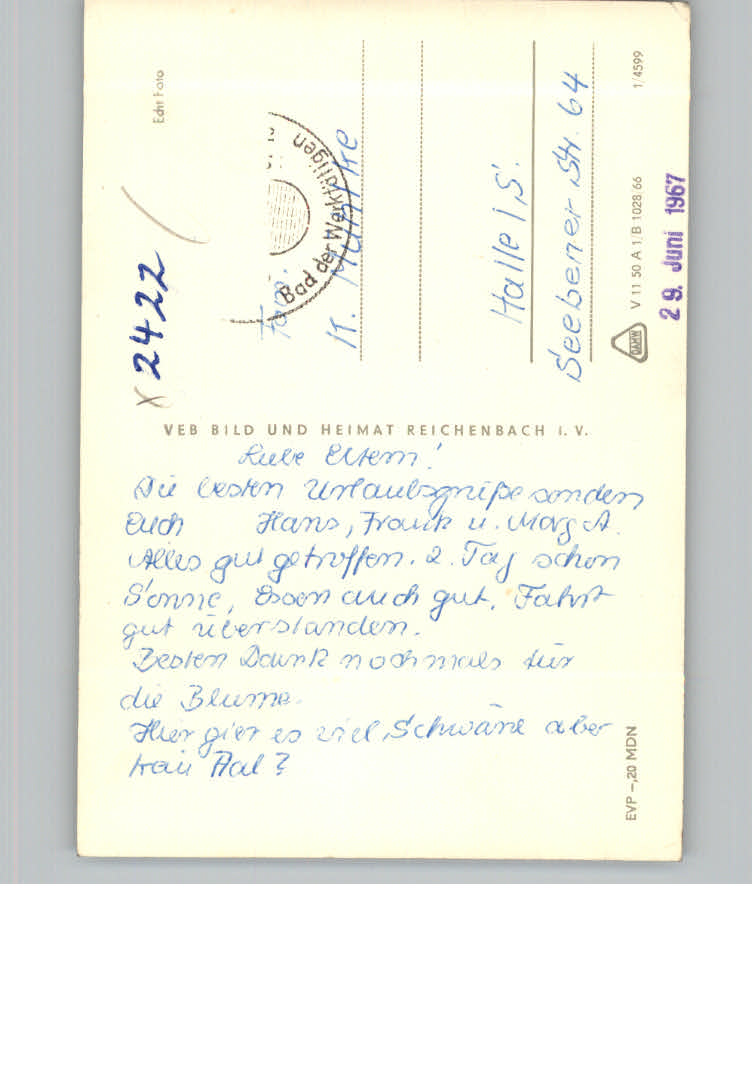 Liebe Eltern!
Die besten Urlaubsgrüße senden
Euch Hans, Frank u. Marg A.
Alles gut getroffen. 2. Tag schon
Sonne, Essen auch gut. Fahrt
gut überstanden.
Besten Dank nochmals für
die Blume.
Hier gier es viel Schwäne aber
kein Aal?
VEB BILD UND HEIMAT REICHENBACH I. V.
Echt Foto
X 2422
Bad der Werktätigen
Fam.
K.
Halle / S.
Seebener Str. 64
DAMW
V 11 50 A 1/B 1028 66
1/4599
29. Juni 1967
EVP –,20 MDN